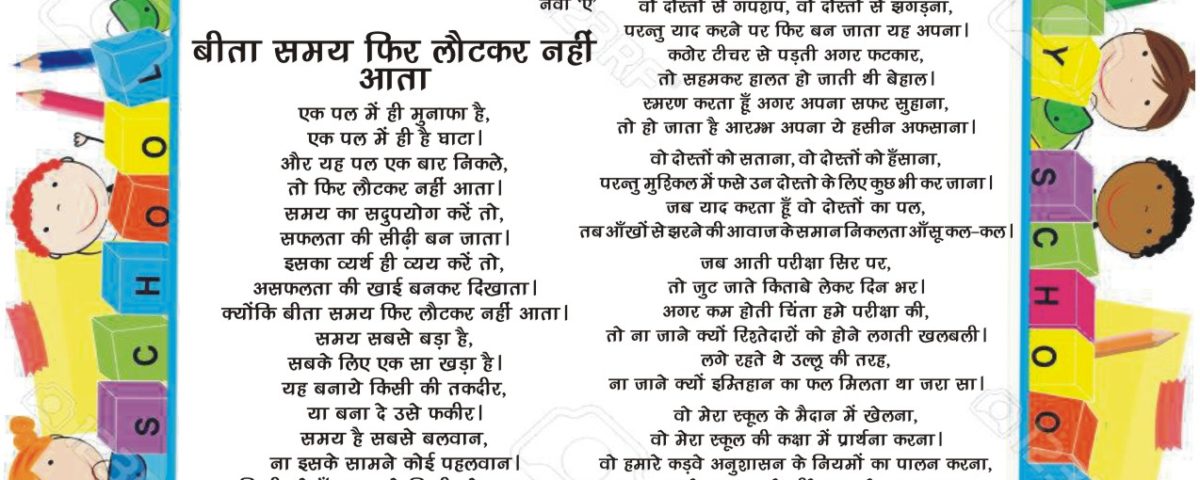 नवीं 'ए'
बीता समय फिर लौटकर नहीं
आता
एक पल में ही मुनाफा है,
एक पल में ही है घाटा।
और यह पल एक बार निकले,
तो फिर लौटकर नहीं आता।
समय का सदुपयोग करें तो,
सफलता की सीढ़ी बन जाता।
इसका व्यर्थ ही व्यय करें तो,
असफलता की खाई बनकर दिखाता।
क्योंकि बीता समय फिर लौटकर नहीं आता।
समय सबसे बड़ा है,
सबके लिए एक सा खड़ा है।
यह बनाये किसी की तकदीर,
या बना दे उसे फकीर।
समय है सबसे बलवान,
ना इसके सामने कोई पहलवान।
वो दोस्तों से गपशप, वो दोस्तों से झगड़ना,
परन्तु याद करने पर फिर बन जाता यह अपना।
कठोर टीचर से पड़ती अगर फटकार,
तो सहमकर हालत हो जाती थी बेहाल।
स्मरण करता हूँ अगर अपना सफर सुहाना,
तो हो जाता है आरम्भ अपना ये हसीन अफसाना।
वो दोस्तों को सताना, वो दोस्तों को हँसाना,
परन्तु मुश्किल में फसे उन दोस्तो के लिए कुछ भी कर जाना।
जब याद करता हूँ वो दोस्तों का पल,
तब आँखों से झरने की आवाज के समान निकलता आँसू कल-कल।
जब आती परीक्षा सिर पर,
तो जुट जाते किताबे लेकर दिन भर।
अगर कम होती चिंता हमे परीक्षा की,
तो ना जाने क्यों रिश्तेदारों को होने लगती खलबली।
लगे रहते थे उल्लू की तरह,
ना जाने क्यों इम्तिहान का फल मिलता था जरा सा।
वो मेरा स्कूल के मैदान में खेलना,
वो मेरा स्कूल की कक्षा में प्रार्थना करना।
वो हमारे कड़वे अनुशासन के नियमों का पालन करना,
L
O
O
H
C
S
Y
S
C
H
O
O